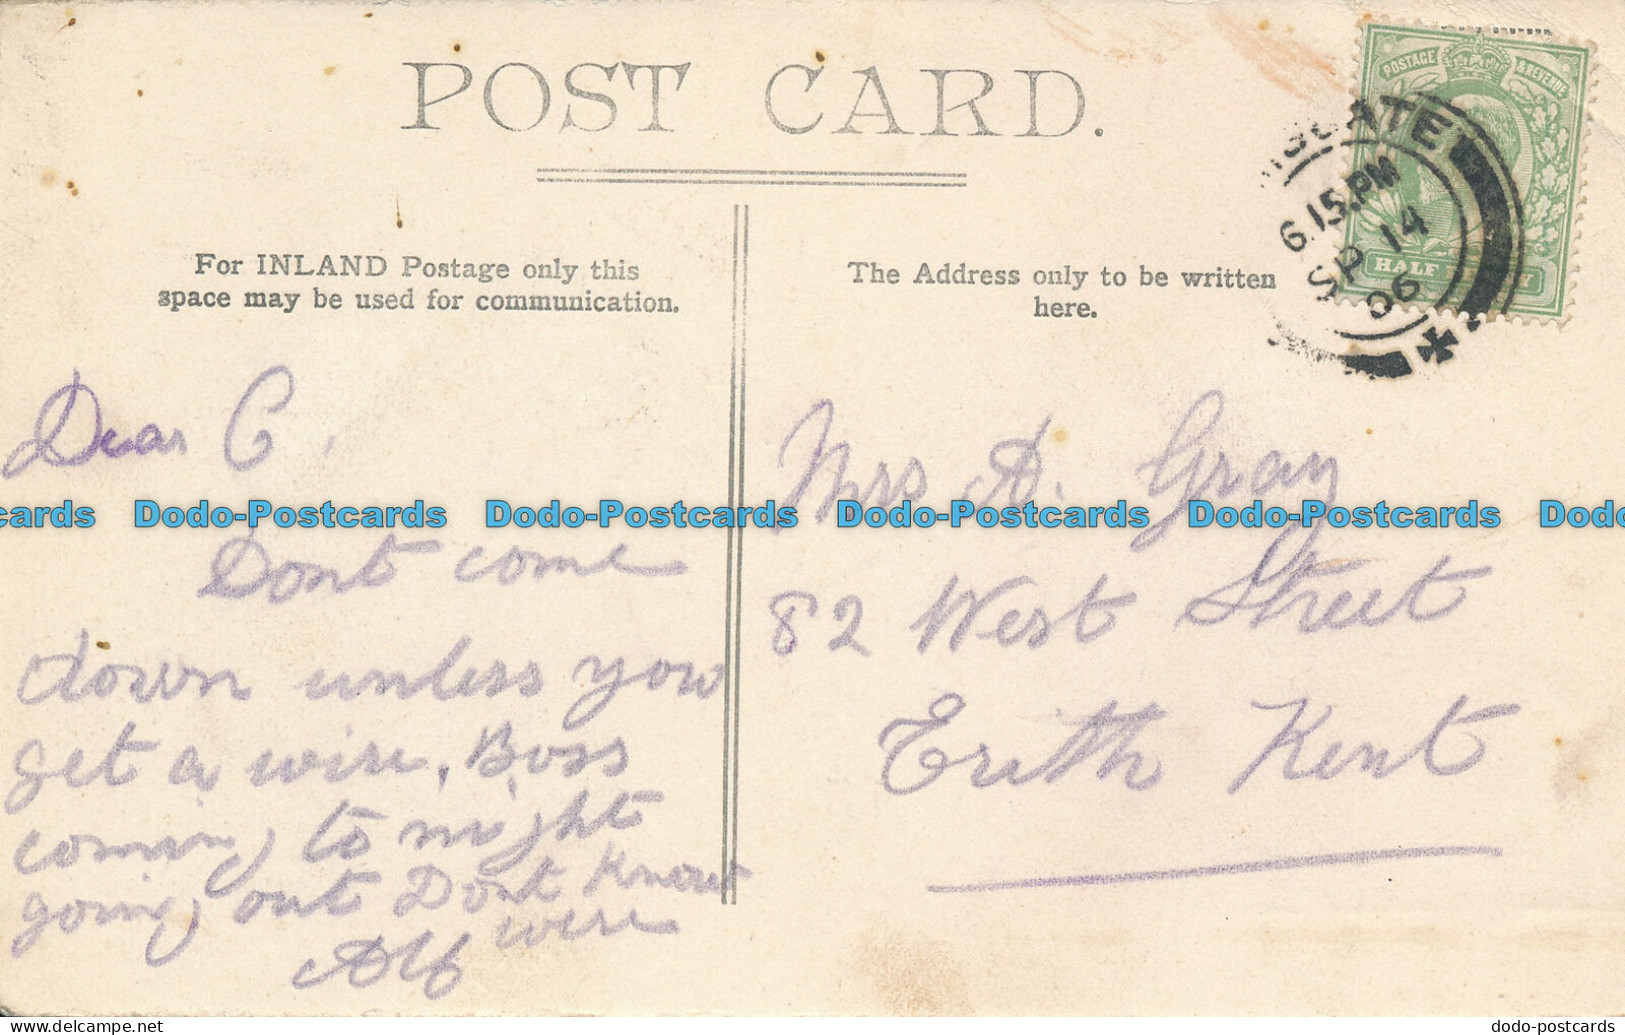 POST CARD.
For INLAND Postage only this
space may be used for communication.
The Address only to be written
here.
POSTAGE & REVENUE
HALF
SGATE
6.15.PM
SP 14
06
Dear C.
Dont come
down unless you
get a wire, Boss
coming to night
going out Dont Know
wire
Alf
Mrs A. Gray
82 West Street
Erith Kent
cards Dodo-Postcards Dodo-Postcards Dodo-Postcards Dodo-Postcards Dodo
www.delcampe.net
dodo-postcards